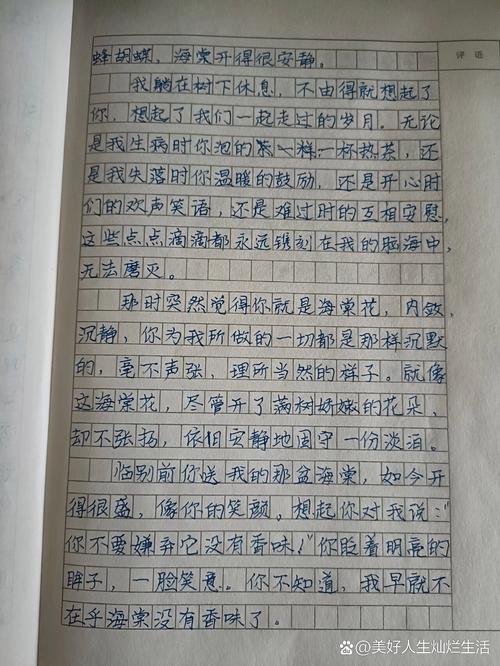 评语
蜂胡蝶，海棠开得很安静。
我躺在树下休息，不由得就想起了
你，想起了我们一起走过的岁月。无论
是我生病时你泡的一杯热茶，还
是我失落时你温暖的鼓励，还是开心时
们的欢声笑语，还是难过时的互相安慰，
这些点点滴滴都永远镌刻在我的脑海中，
无法磨灭。
那时突然觉得你就是海棠花，内敛
沉静，你为我所做的一切都是那样沉默
的，毫不声张，理所当然的样子。就像
这海棠花，尽管开了满树娇嫩的花朵，
却不张扬，依旧安静地固守一份淡泊。
临别前你送我的那盆海棠，如今开
得很盛，像你的笑颜，想起你对我说："
你不要嫌弃它没有香味！"你眨着明亮的
眸子，一脸笑意。你不知道，我早就不
在乎海棠没有香味了。
美好人生灿烂生活